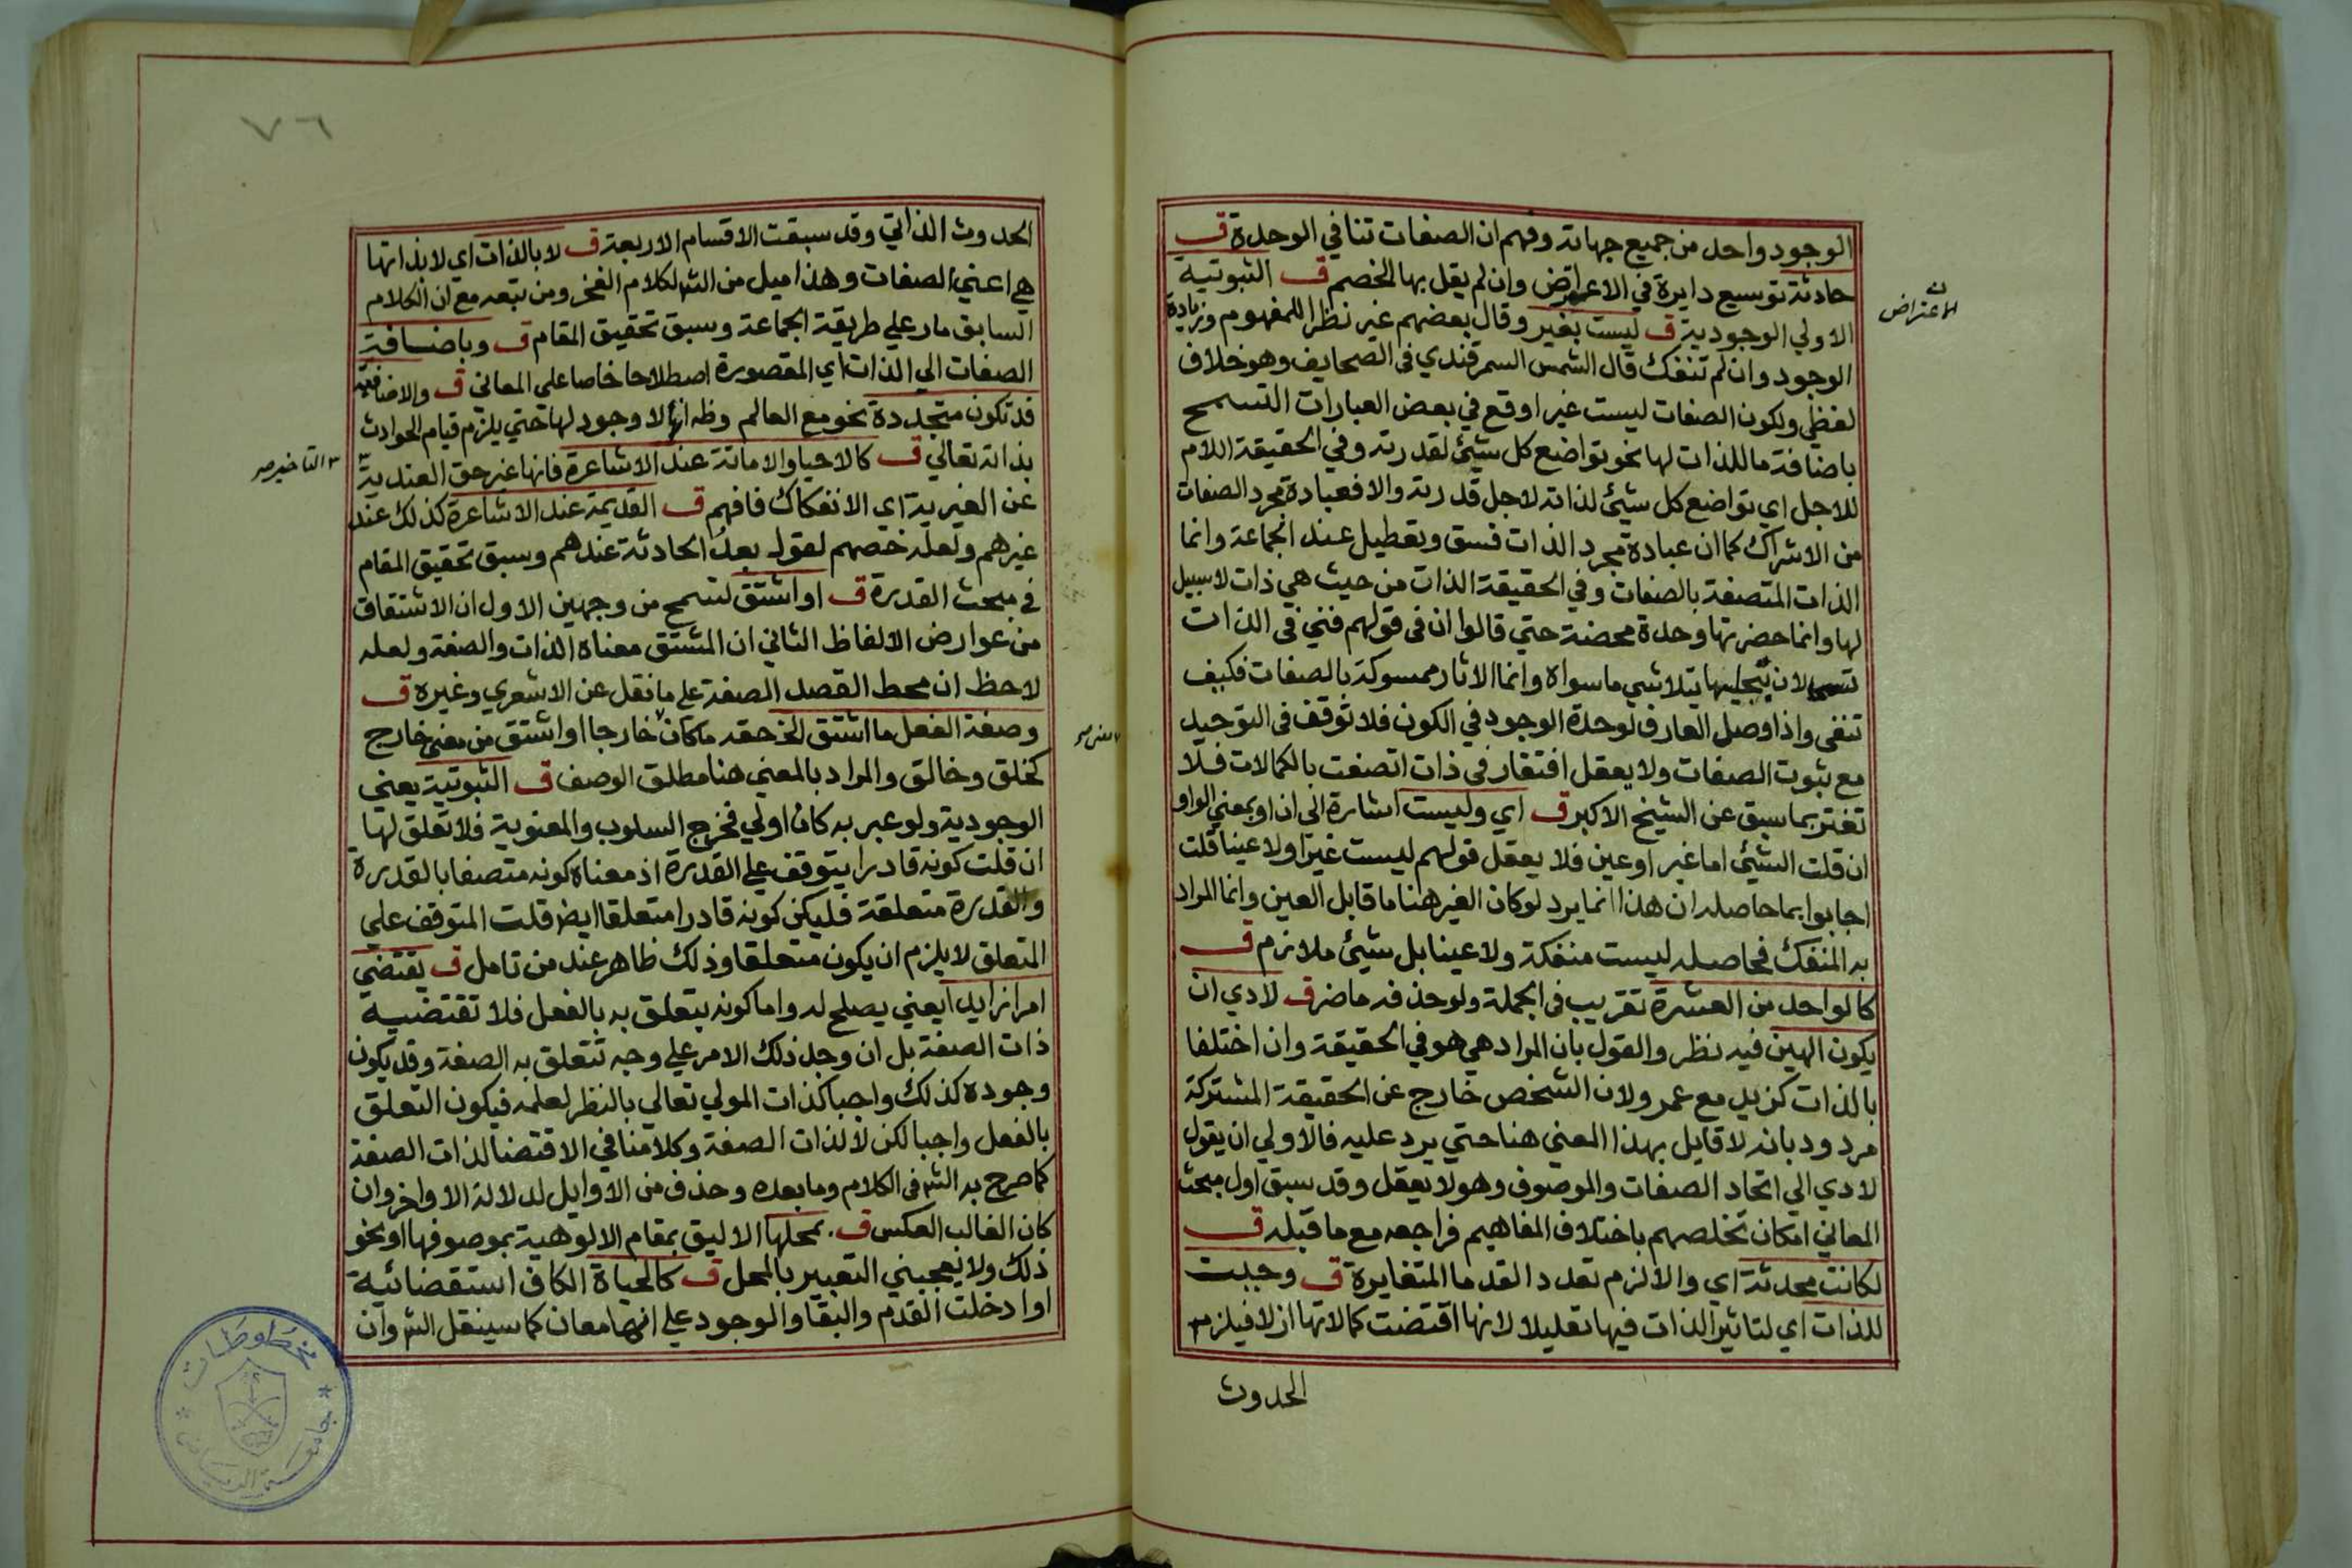 الوجود واحد من جميع جهاته وفهم ان الصفات تنافي الوحدة ق
حادثة توسيع دايرة في الاعتراض وان لم يقل بها الخصم ق الثبوتية
الاعتراض
الاولي الوجودية ق ليست بغير وقال بعضهم غير نظرا للمفهوم وزيادة
الوجود وان لم تنفك قال الشمس السمرقندي في الصحايف وهو خلاف
لفظي ولكون الصفات ليست غيرا وقع في بعض العبارات التسمح
باضافة ما للذات لها نحو تواضع كل شيئ لقدرته وفي الحقيقة اللام
للاجل اي تواضع كل شيئ لذاته لاجل قدرته والا فعبادة مجرد الصفات
من الاشراك كما ان عبادة مجرد الذات فسق وتعطيل عند الجماعة وانما
الذات المتصفة بالصفات وفي الحقيقة الذات من حيث هي ذات لا سبيل
لها وانما حضرتها وحدة محضة حتي قالوا ان في قولهم فني في الذات
لان بتجليها يتلاشي ما سواه وانما الاثار ممسوكة بالصفات فكيف
تنفي واذا وصل العارف لوحدة الوجود في الكون فلا توقف في التوحيد
مع ثبوت الصفات ولا يعقل افتقار في ذات اتصفت بالكمالات فلا
تغتر بما سبق عن الشيخ الاكبر ق اي وليست اشارة الي ان او بمعني الواو
ان قلت الشيئ اما غير او عين فلا يعقل قولهم ليست غيرا ولا عينا قلت
اجابوا بما حاصله ان هذا انما يرد لو كان الغير هنا ما قابل العين وانما المراد
به المنفك فحاصله ليست منفكة ولا عينا بل شيئ ملازم ق
كالواحد من العشرة تقريب في الجملة ولو حذفه ما ضر ق لادي ان
يكون الهين فيه نظر والقول بان المراد هي هو في الحقيقة وان اختلفا
بالذات كزيد مع عمرو لان الشخص خارج عن الحقيقة المشتركة
مردود بانه لا قايل بهذا المعني هنا حتي يرد عليه فالاولي ان يقول
لادي الي اتحاد الصفات والموصوف وهو لا يعقل وقد سبق اول مبحث
المعاني امكان تخلصهم باختلاف المفاهيم فراجعه مع ما قبله ق
لكانت محدثة اي والا لزم تعدد القدما المتغايرة ق وجبت
للذات اي لتاثير الذات فيها تعليلا لانها اقتضت كمالاتها ازلا فيلزم
الحدوث
٧٦
الحدوث الذاتي وقد سبقت الاقسام الاربعة ق لا بالذات اي لا بذاتها
هي اعني الصفات وهذا ميل من الش لكلام الفخر ومن تبعه مع ان الكلام
السابق مار علي طريقة الجماعة وسبق تحقيق المقام ق وباضافة
الصفات الي الذات اي المقصورة اصطلاحا خاصا علي المعاني ق والاضافة
قد تكون متجددة نحو مع العالم وظ انها لا وجود لها حتي يلزم قيام الحوادث
بذاته تعالي ق كالاحيا والاماتة عند الاشاعرة فانها غير حق العندية
التاخير صح
عن الغيرية اي الانفكاك فافهم ق القديمة عند الاشاعرة كذلك عند
غيرهم ولعله خصهم لقوله بعد الحادثة عندهم وسبق تحقيق المقام
في مبحث القدرة ق او اشتق تسمح من وجهين الاول ان الاشتقاق
من عوارض الالفاظ الثاني ان المشتق معناه الذات والصفة ولعله
لاحظ ان محط القصد الصفة علي ما نقل عن الاشعري وغيره ق
وصفة الفعل ما اشتق الخ حقه ما كان خارجا او اشتق من معني خارج
كخلق وخالق والمراد بالمعني هنا مطلق الوصف ق الثبوتية يعني
الوجودية ولو عبر به كان اولي فخرج السلوب والمعنوية فلا تعلق لها
ان قلت كونه قادرا يتوقف علي القدرة اذ معناه كونه متصفا بالقدرة
والقدرة متعلقة فليكن كونه قادرا متعلقا ايض قلت المتوقف علي
المتعلق لا يلزم ان يكون متعلقا وذلك ظاهر عند من تامل ق يقتضي
امرا زايدا يعني يصلح له واما كونه يتعلق به بالفعل فلا تقتضيه
ذات الصفة بل ان وجد ذلك الامر علي وجه تتعلق به الصفة وقد يكون
وجوده كذلك واجبا كذات المولي تعالي بالنظر لعلمه فيكون التعلق
بالفعل واجبا لكن لا لذات الصفة وكلامنا في الاقتضا لذات الصفة
كما صرح به الش في الكلام وما بعده وحذف من الاوايل لدلالة الاواخر وان
كان الغالب العكس ق بمحلها الاليق بمقام الالوهية بموصوفها او نحو
ذلك ولا يعجبني التعبير بالمحل ق كالحياة الكاف استقصائية
او ادخلت القدم والبقا والوجود علي انها معان كما سينقل الش وان
مخطوطات
جامعة الرياض